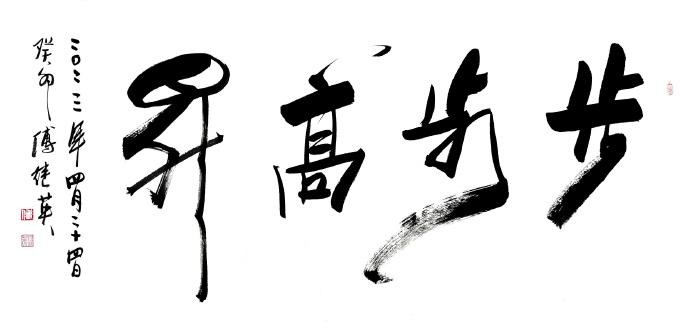 步步高昇
二〇二三年四月二十四日
癸卯 傅英